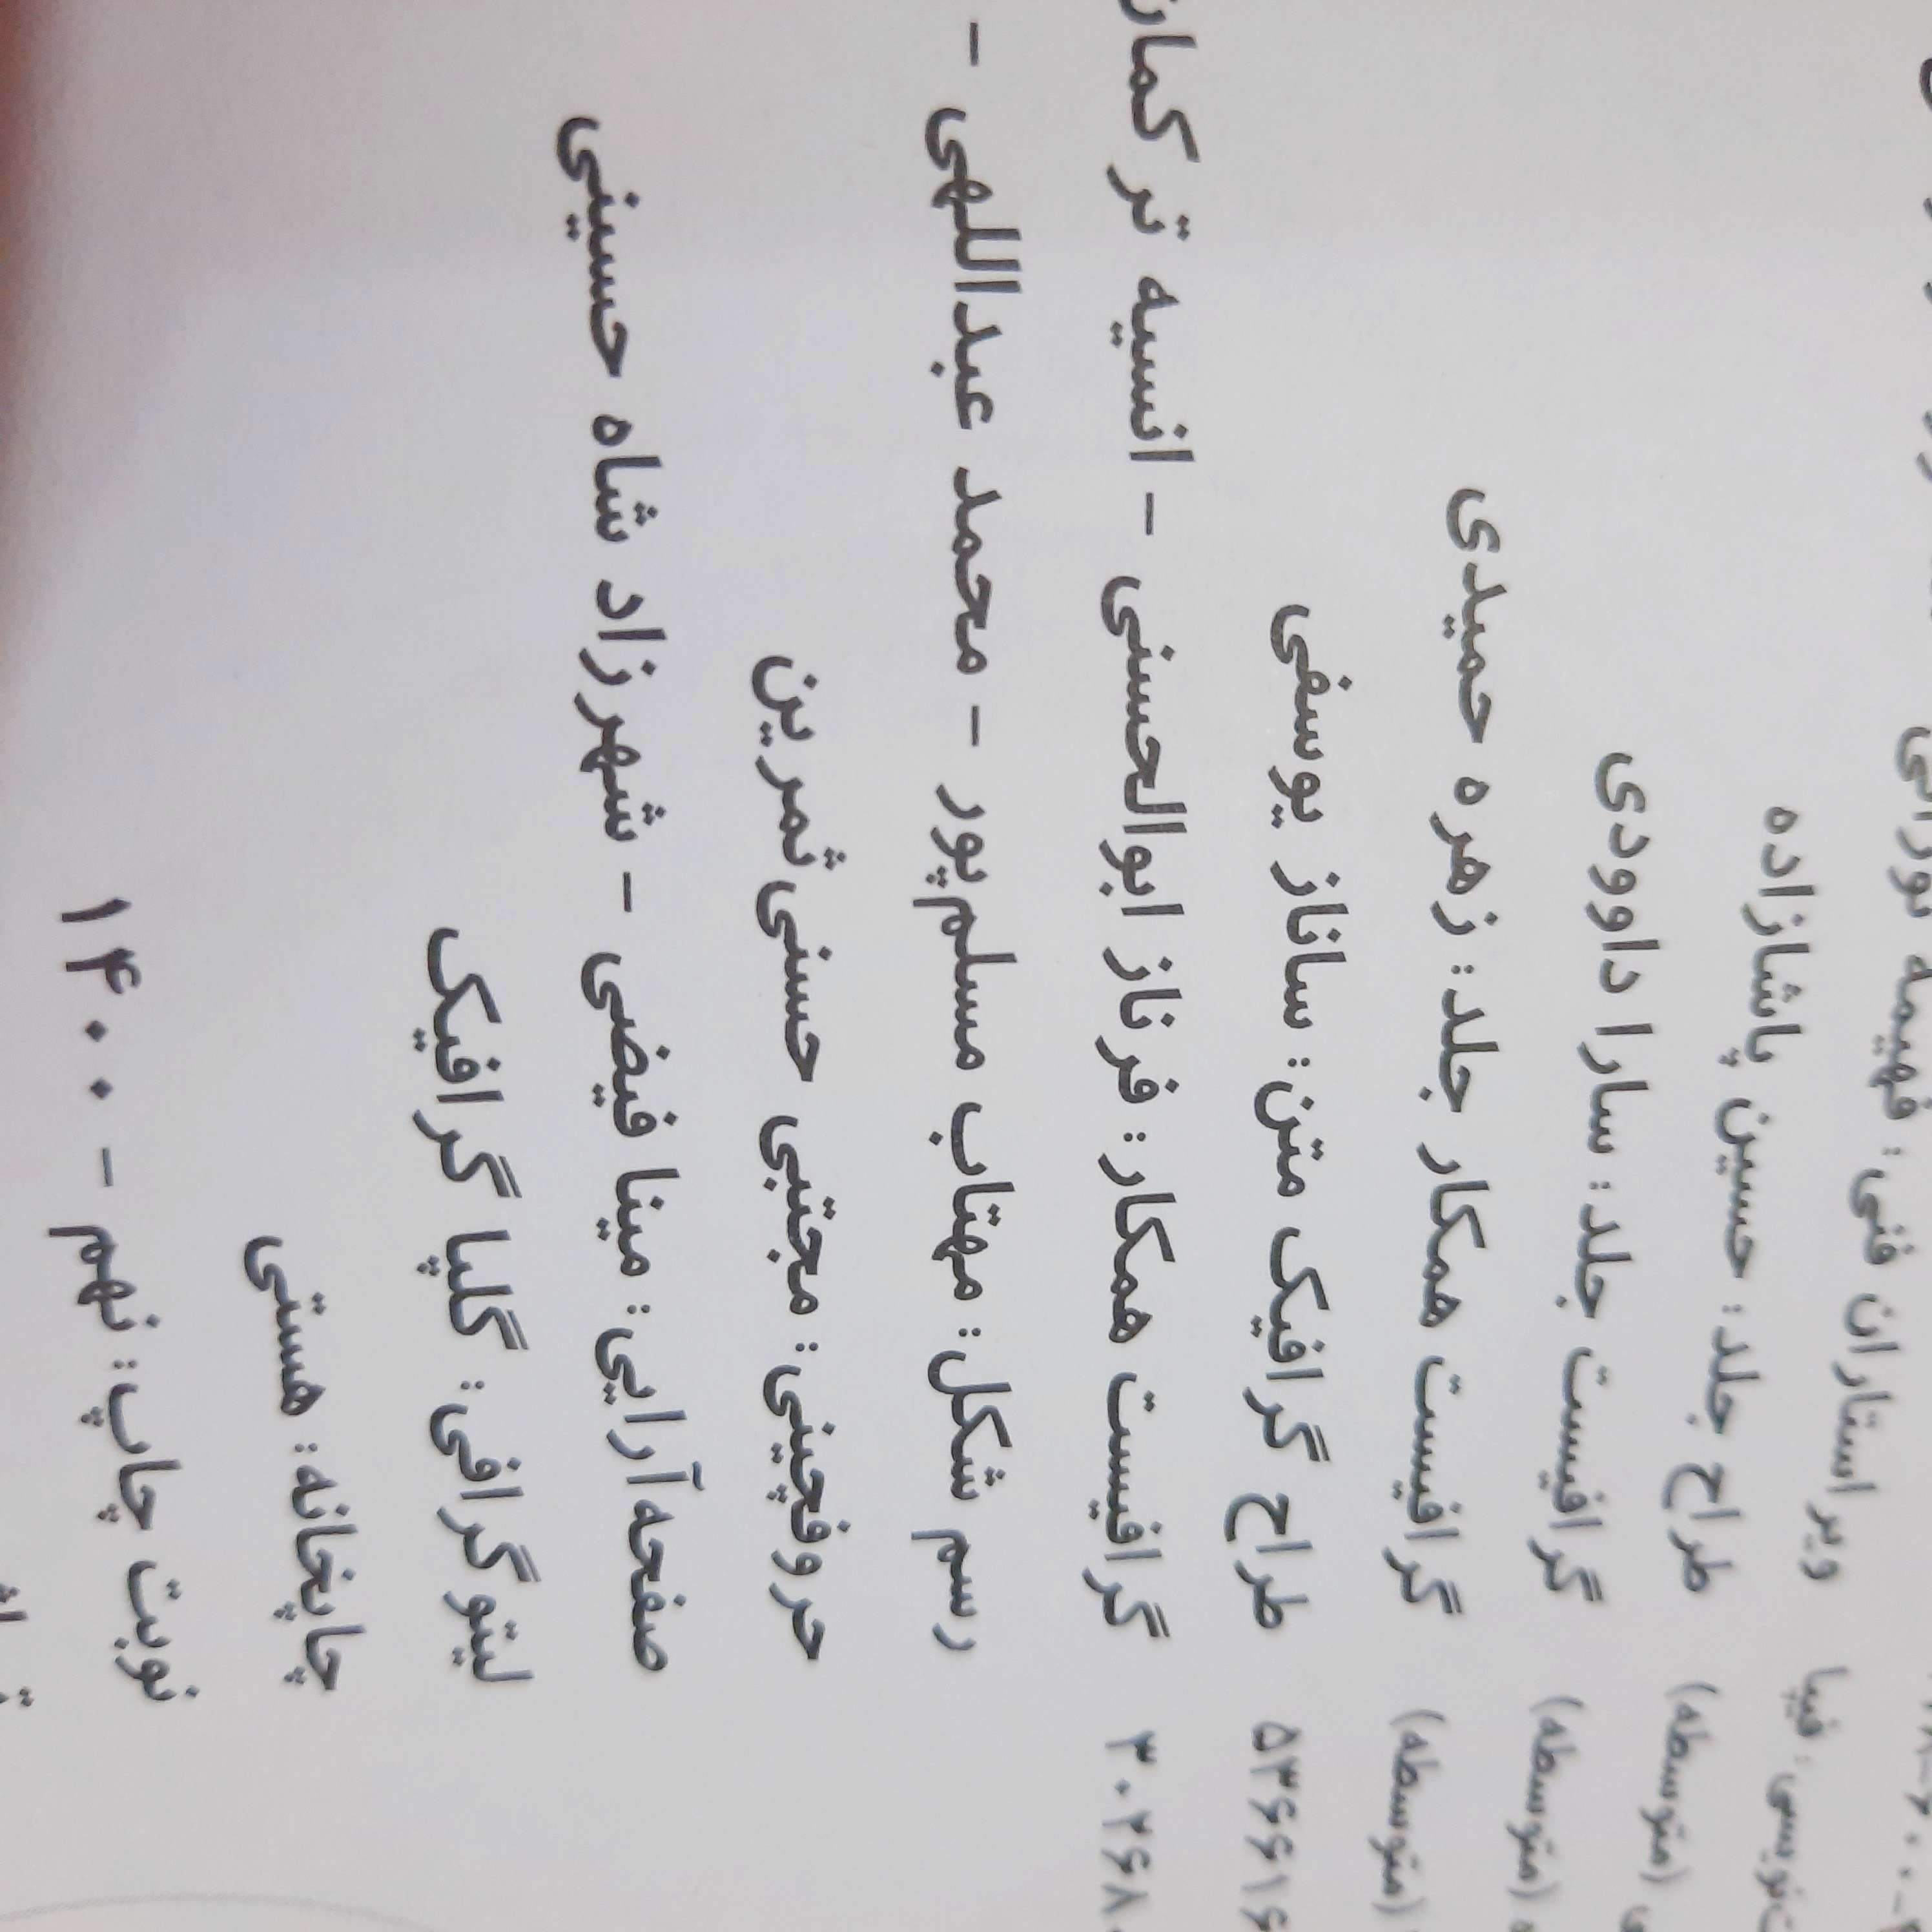 ویراستاران فنی: فهیمه نورانی
طراح جلد: حسین پاشازاده
گرافیست جلد: سارا داوودی
گرافیست همکار جلد: زهره حمیدی
طراح گرافیک متن: ساناز یوسفی
گرافیست همکار: فرناز ابوالحسنی - انسیه ترکمان
رسم شکل: مهتاب مسلم‌پور - محمد عبداللهی -
حروفچینی: مجتبی حسنی‌ثمرین
صفحه‌آرایی: مینا فیضی - شهرزاد شاه حسینی
لیتوگرافی: گلپا گرافیک
چاپخانه: هستی
نوبت چاپ: نهم - ۱۴۰۰
فیپا
(متوسطه)
(متوسطه)
(متوسطه)
۵۳۶۶۱۶
۳۰۲۶۸